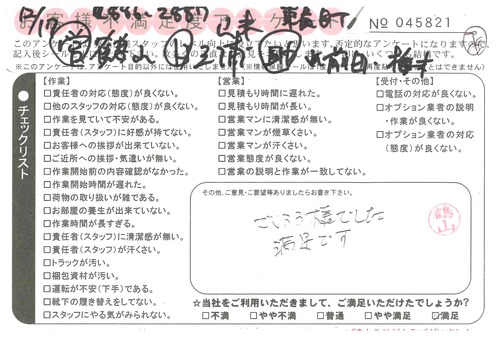 お客様満足度アンケート
No 045821
チェックリスト
【作業】
□責任者の対応(態度)が良くない。
□他のスタッフの対応(態度)が良くない。
□作業を見ていて不安がある。
□責任者(スタッフ)に好感が持てない。
□お客様への挨拶が出来ていない。
□ご近所への挨拶・気遣いが無い。
□作業開始前の内容確認がなかった。
□作業開始時間が遅れた。
□荷物の取り扱いが雑である。
□お部屋の養生が出来ていない。
□作業時間が長すぎる。
□責任者(スタッフ)に清潔感が無い。
□責任者(スタッフ)が汗くさい。
□トラックが汚い。
□梱包資材が汚い。
□運転が不安(下手)である。
□靴下の履き替えをしてない。
□スタッフにやる気がみられない。
【営業】
□見積もり時間に遅れた。
□見積もり時間が長い。
□営業マンに清潔感が無い。
□営業マンが煙草くさい。
□営業マンが汗くさい。
□営業態度が良くない。
□営業の説明と作業が一致してない。
【受付・その他】
□電話の対応が良くない。
□オプション業者の説明
・作業が良くない。
□オプション業者の対応
(態度)が良くない。
その他、ご意見・ご要望等ありましたらお書き下さい。
ごくろう様でした
満足です
鶴山
☆当社をご利用いただきまして、ご満足いただけたでしょうか?
□不満 □やや不満 □普通 □やや満足 ☑満足